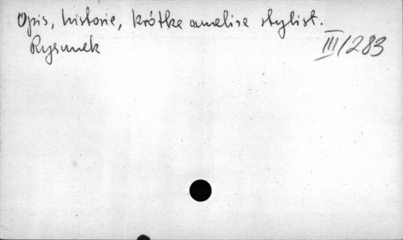 Opis, historie, krótka analiza stylist.
Rysunek III/283